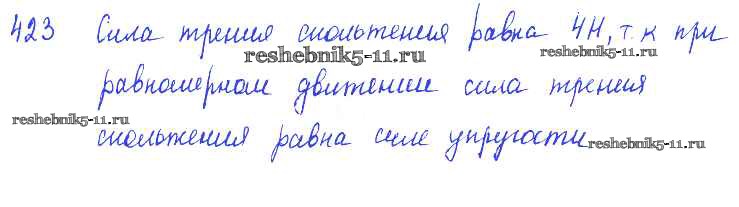 423 Сила трения скольжения равна 4Н, т.к при
reshebnik5-11.ru reshebnik5-11.ru
равномерном движении сила трения
reshebnik5-11.ru
скольжения равна силе упругости
reshebnik5-11.ru